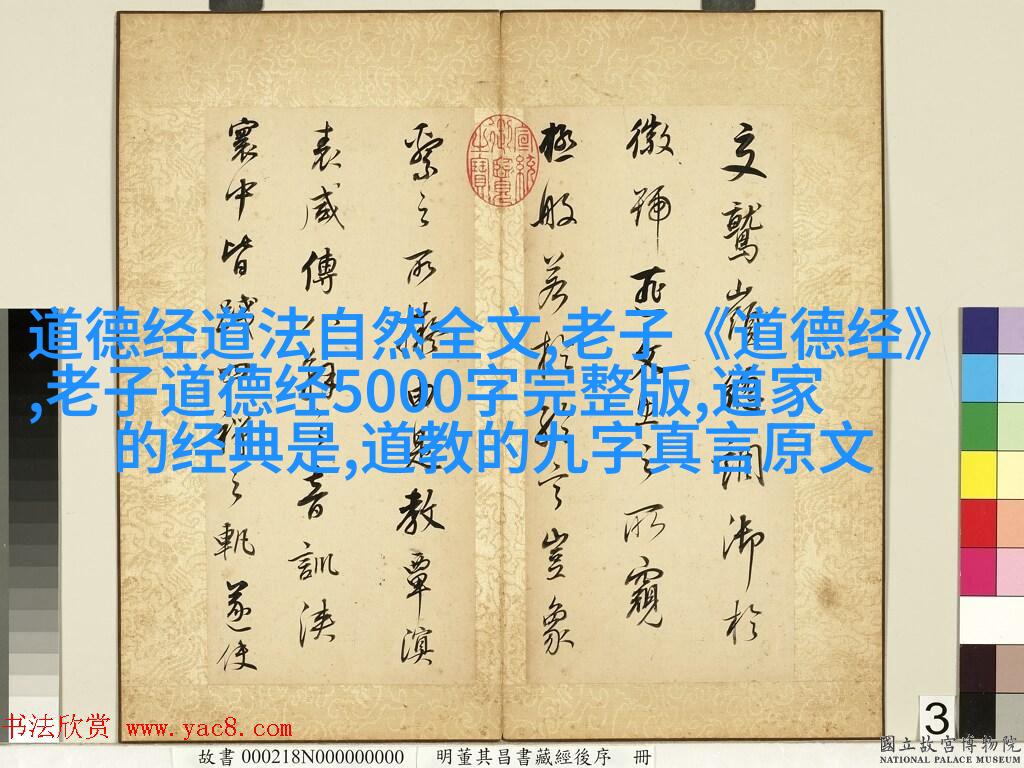 文鷲嶺調御於
徽號匪文生之所窺
極般若於形言豈象
繫之所擬由是教覃溟
表咸傳八解之音訓浹
寰中皆踐四禪之軌遂使
道德经道法自然全文,老子《道德经》
,老子道德经5000字完整版,道家
的经典是,道教的九字真言原文
3
书法欣赏 www.yac8.com
故書 000218N000000000
明董其昌書藏經後序 冊
國立故宮博物院
NATIONAL PALACE MUSEUM